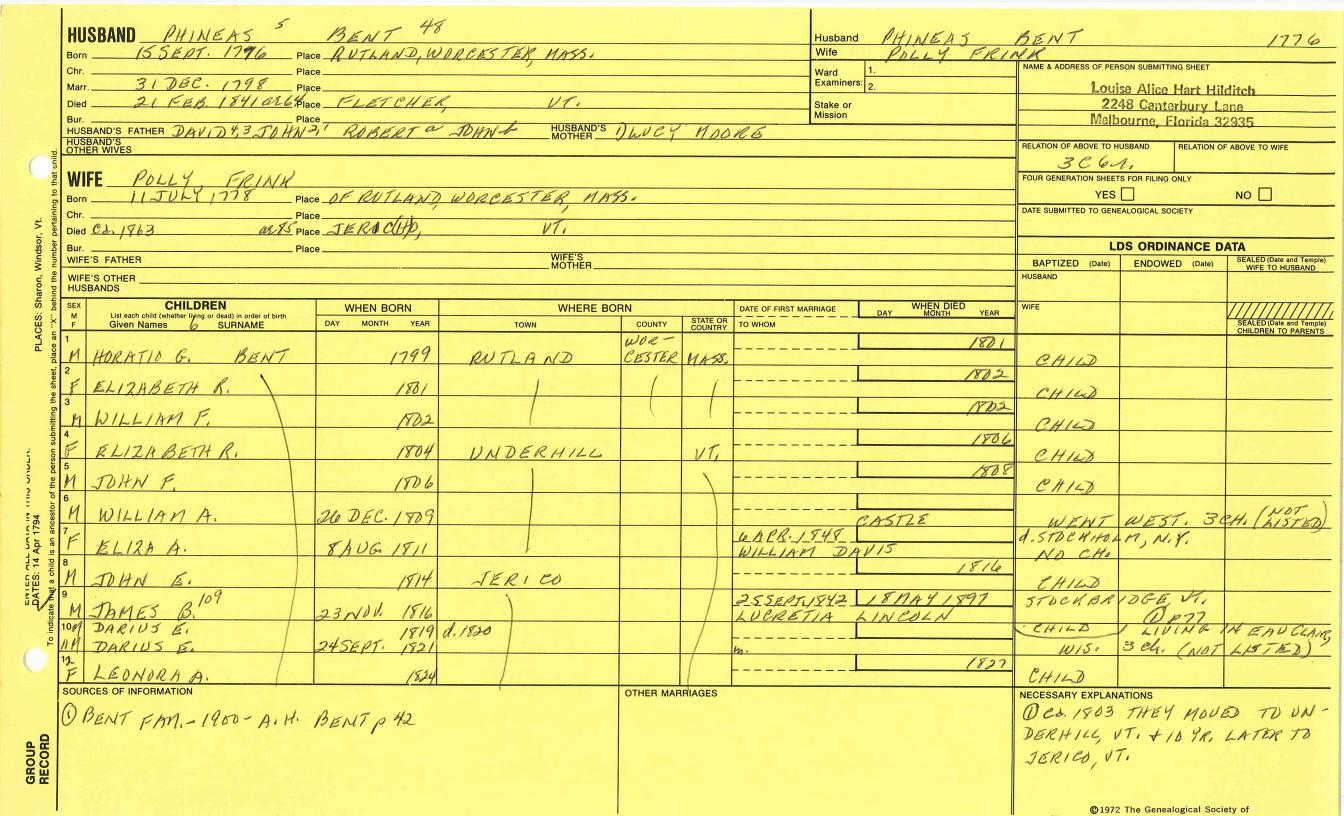 HUSBAND PHINEAS 5 BENT 48
Born 15 SEPT. 1776 Place RUTLAND, WORCESTER, MASS.
Chr. Place
Marr. 31 DEC. 1798 Place
Died 21 FEB 1841 ae 64 Place FLETCHER, VT.
Bur. Place
HUSBAND'S FATHER DAVID 4,3 JOHN 2, ROBERT a JOHN b HUSBAND'S MOTHER LUCY MOORE
HUSBAND'S OTHER WIVES
Husband PHINEAS BENT 1776
Wife POLLY FRINK
Ward Examiners: 1.
2.
Stake or Mission
NAME & ADDRESS OF PERSON SUBMITTING SHEET
Louise Alice Hart Hilditch
2248 Canterbury Lane
Melbourne, Florida 32935
RELATION OF ABOVE TO HUSBAND RELATION OF ABOVE TO WIFE
3C6r.
FOUR GENERATION SHEETS FOR FILING ONLY
YES NO
DATE SUBMITTED TO GENEALOGICAL SOCIETY
WIFE POLLY FRINK
Born 11 JULY 1778 Place OF RUTLAND, WORCESTER, MASS.
Chr. Place
Died Ca. 1863 ae 85 Place JERIC(H)O, VT.
Bur. Place
WIFE'S FATHER WIFE'S MOTHER
WIFE'S OTHER HUSBANDS
LDS ORDINANCE DATA
BAPTIZED (Date) ENDOWED (Date) SEALED (Date and Temple) WIFE TO HUSBAND
HUSBAND
WIFE
SEALED (Date and Temple) CHILDREN TO PARENTS
SEX M F CHILDREN List each child (whether living or dead) in order of birth Given Names 6 SURNAME WHEN BORN DAY MONTH YEAR WHERE BORN TOWN COUNTY STATE OR COUNTRY DATE OF FIRST MARRIAGE TO WHOM WHEN DIED DAY MONTH YEAR
1 M HORATIO G. BENT 1799 RUTLAND WOR-CESTER MASS. 1801 CHILD
2 F ELIZABETH R. 1801 1802 CHILD
3 M WILLIAM F. 1802 1802 CHILD
4 F ELIZABETH R. 1804 UNDERHILL VT. 1806 CHILD
5 M JOHN F. 1806 1808 CHILD
6 M WILLIAM A. 26 DEC. 1809 CASTLE WENT WEST. 3 CH. (NOT LISTED)
7 F ELIZA A. 8 AUG 1811 6 APR. 1848 WILLIAM DAVIS d. STOCKHOLM, N.Y. NO CH.
8 M JOHN E. 1814 JERICO 1816 CHILD
9 M JAMES B. 109 23 NOV. 1816 25 SEPT. 1842 LUCRETIA LINCOLN 18 MAY 1897 STOCKBRIDGE VT. ① p77
10 M DARIUS E. 1819 d. 1820 CHILD
11 M DARIUS E. 24 SEPT. 1821 m. LIVING IN EAU CLAIR, WIS. 3 Ch. (NOT LISTED)
12 F LEONORA A. 1824 1827 CHILD
SOURCES OF INFORMATION
① BENT FAM. - 1900 - A.H. BENT p 42
OTHER MARRIAGES
NECESSARY EXPLANATIONS
① Ca. 1803 THEY MOVED TO UN-
DERHILL, VT. + 10 YR. LATER TO
JERICO, VT.
©1972 The Genealogical Society of
PLACES: Sharon, Windsor, Vt.
DATES: 14 Apr 1794
To indicate that a child is an ancestor of the person submitting the sheet, place an "X" behind the number pertaining to that child.
GROUP
RECORD